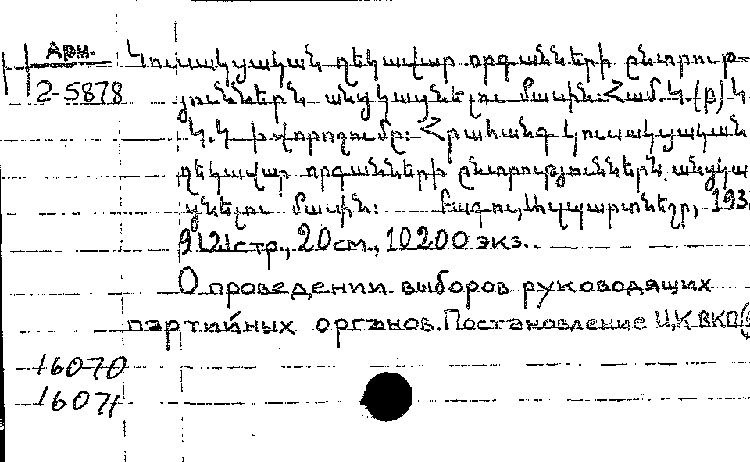 Арм.
2-5878
Կուսակցական ղեկավար օրգանների ընտրութ-
յուններն անցկացնելու մասին: Համ.Կ.(բ)Կ
Կ.Կ որոշումը: Հրահանգ կուսակցական
ղեկավար օրգանների ընտրություններն անցկա
ցնելու մասին: Բաքու, 193
21 стр., 20 см., 10200 экз.
О проведении выборов руководящих
партийных органов. Постановление ЦК ВКП(
16070
16071